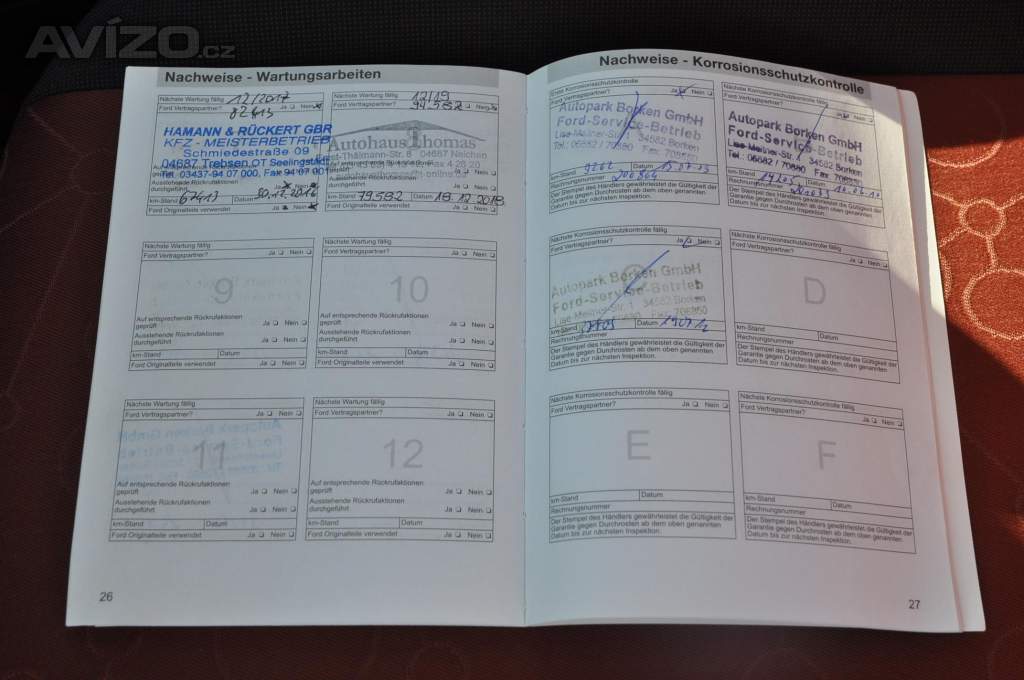 AVÍZO.cz
Nachweise - Wartungsarbeiten
Nächste Wartung fällig 12/2017
Ford Vertragspartner? Ja Nein
82413
HAMANN & RÜCKERT GBR
KFZ - MEISTERBETRIEB
Schmiedestraße 09
04687 Trebsen OT Seelingstädt
Tel. 03437-94 07 000, Fax 94 07 001
Ausstehende
durchgeführt Ja Nein
km-Stand 67413 Datum 30.12.2016
Ford Originalteile verwendet Ja Nein
Nächste Wartung fällig 12/19
Ford Vertragspartner? 99.582 Ja Nein
Autohaus Thomas
04687 Nerchau
durchgeführt
km-Stand 79.582 Datum 18.12.2018
Ford Originalteile verwendet Ja Nein
Nächste Wartung fällig
Ford Vertragspartner? Ja Nein
9
Auf entsprechende Rückrufaktionen
geprüft Ja Nein
Ausstehende Rückrufaktionen
durchgeführt Ja Nein
km-Stand Datum
Ford Originalteile verwendet Ja Nein
Nächste Wartung fällig
Ford Vertragspartner? Ja Nein
10
Auf entsprechende Rückrufaktionen
geprüft Ja Nein
Ausstehende Rückrufaktionen
durchgeführt Ja Nein
km-Stand Datum
Ford Originalteile verwendet Ja Nein
Nächste Wartung fällig
Ford Vertragspartner? Ja Nein
11
Auf entsprechende Rückrufaktionen
geprüft Ja Nein
Ausstehende Rückrufaktionen
durchgeführt Ja Nein
km-Stand Datum
Ford Originalteile verwendet Ja Nein
Nächste Wartung fällig
Ford Vertragspartner? Ja Nein
12
Auf entsprechende Rückrufaktionen
geprüft Ja Nein
Ausstehende Rückrufaktionen
durchgeführt Ja Nein
km-Stand Datum
Ford Originalteile verwendet Ja Nein
26
Nachweise - Korrosionsschutzkontrolle
Korrosionsschutzkontrolle
Ford Vertragspartner? Ja Nein
Autopark Borken GmbH
Ford-Service-Betrieb
34582 Borken
Tel.: 05682 / 70680
km-Stand Datum
Rechnungsnummer
Der Stempel des Händlers gewährleistet die Gültigkeit der
Garantie gegen Durchrosten ab dem oben genannten
Datum bis zur nächsten Inspektion.
Nächste Korrosionsschutzkontrolle fällig
Ford Vertragspartner? Ja Nein
Autopark Borken GmbH
Ford-Service-Betrieb
34582 Borken
km-Stand Datum
Rechnungsnummer
Der Stempel des Händlers gewährleistet die Gültigkeit der
Garantie gegen Durchrosten ab dem oben genannten
Datum bis zur nächsten Inspektion.
Nächste Korrosionsschutzkontrolle fällig
Ford Vertragspartner? Ja Nein
Autopark Borken GmbH
Ford-Service-Betrieb
34582 Borken
km-Stand Datum
Rechnungsnummer
Der Stempel des Händlers gewährleistet die Gültigkeit der
Garantie gegen Durchrosten ab dem oben genannten
Datum bis zur nächsten Inspektion.
Nächste Korrosionsschutzkontrolle fällig
Ford Vertragspartner? Ja Nein
D
km-Stand Datum
Rechnungsnummer
Der Stempel des Händlers gewährleistet die Gültigkeit der
Garantie gegen Durchrosten ab dem oben genannten
Datum bis zur nächsten Inspektion.
Nächste Korrosionsschutzkontrolle fällig
Ford Vertragspartner? Ja Nein
E
km-Stand Datum
Rechnungsnummer
Der Stempel des Händlers gewährleistet die Gültigkeit der
Garantie gegen Durchrosten ab dem oben genannten
Datum bis zur nächsten Inspektion.
Nächste Korrosionsschutzkontrolle fällig
Ford Vertragspartner? Ja Nein
F
km-Stand Datum
Rechnungsnummer
Der Stempel des Händlers gewährleistet die Gültigkeit der
Garantie gegen Durchrosten ab dem oben genannten
Datum bis zur nächsten Inspektion.
27